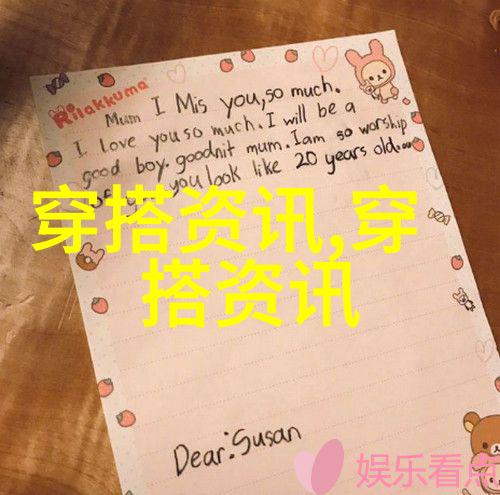 Rilakkuma
Mum I Mis you,so much.
I love you so much. I will be a
good boy. goodnit mum. I am so worship
you look like 20 years old.
穿搭资讯,穿
搭资讯
Dear:Susan
娱乐看点